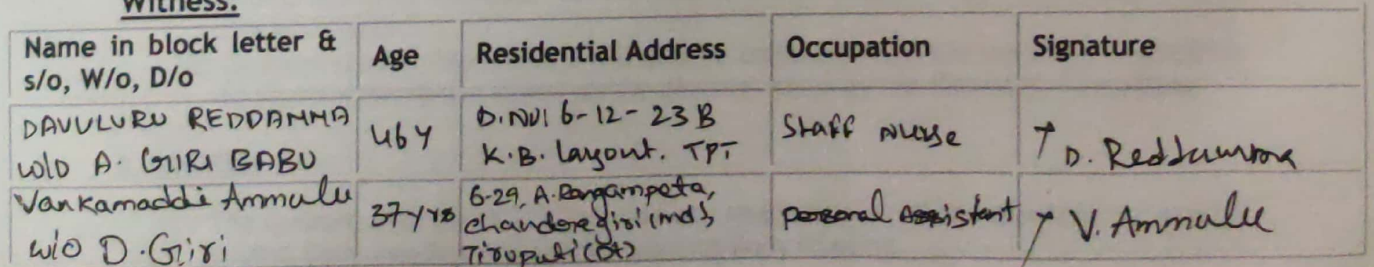 Witness:
Name in block letter & s/o, W/o, D/o
Age
Residential Address
Occupation
Signature
DAVULURU REDDAMMA
W/O A. GIRI BABU
46 Y
D.NO! 6-12-23 B
K.B. Layout. TPT
Staff Nurse
D. Reddamma
Vankamaddi Ammulu
W/O D. Giri
37 yrs
6-29, A. Rangampeta,
chandoregiri (md),
Tirupati (Dt)
personal Assistant
V. Ammulu